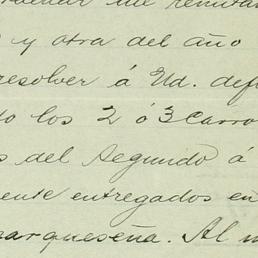 me remitan
y otra del año
resolver á Ud. defi
los 2 ó 3 Carro
s del Segundo á
ente entregados en
arqueseña. Al m